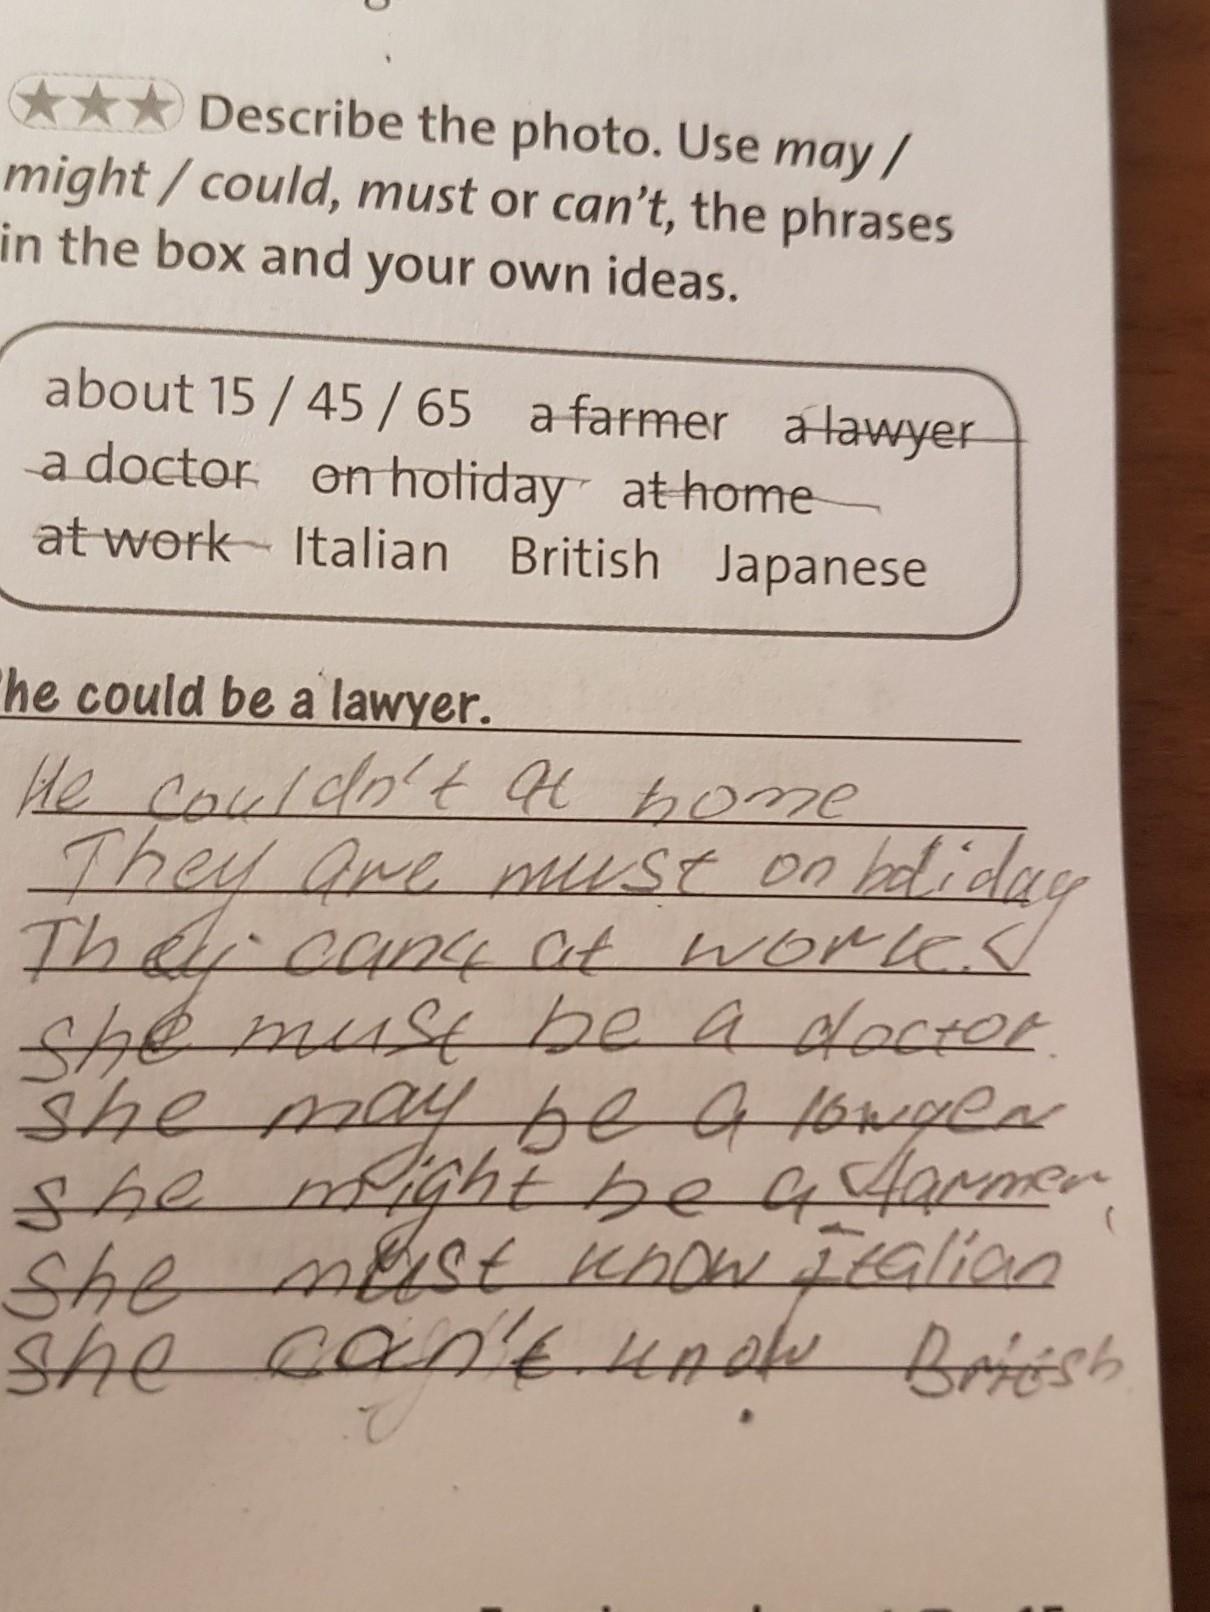 ★★★ Describe the photo. Use may /
might / could, must or can't, the phrases
in the box and your own ideas.
about 15 / 45 / 65 a farmer a lawyer
a doctor on holiday at home
at work Italian British Japanese
he could be a lawyer.
He couldn't at home
They are must on holiday
They can't at work.
she must be a doctor.
she may be a lowyer
she might be a farmer,
She must know italian
she can't know Britsh